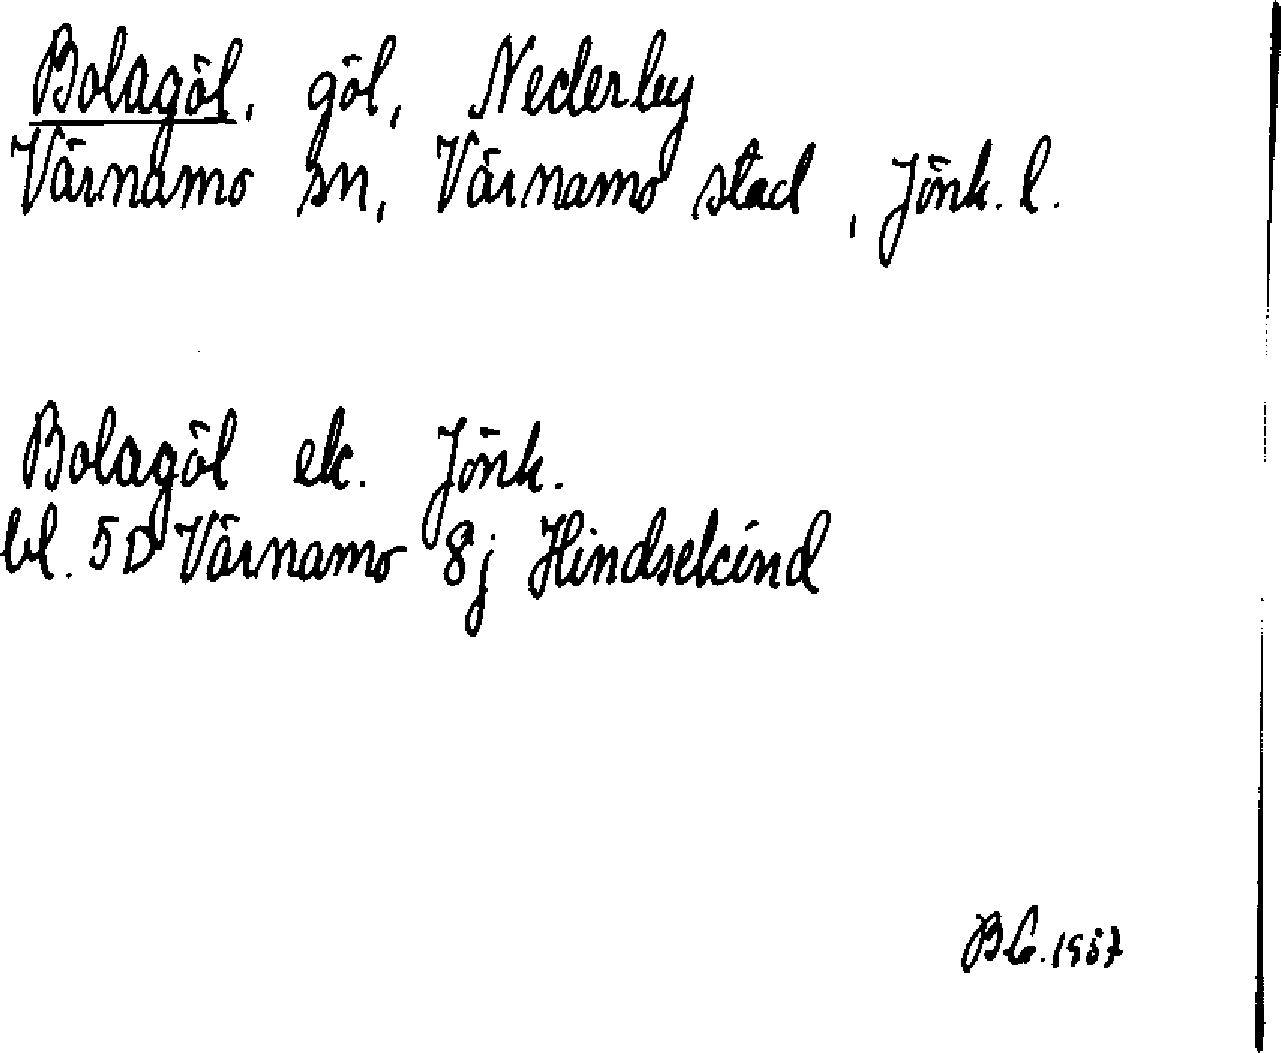 Bolagöl, göl, Nederby
Värnamo sn, Värnamo stad, Jönk. l.
Bolagöl ek. Jönk.
bl. 5D Värnamo 8j Hindsekind
BG. 1957